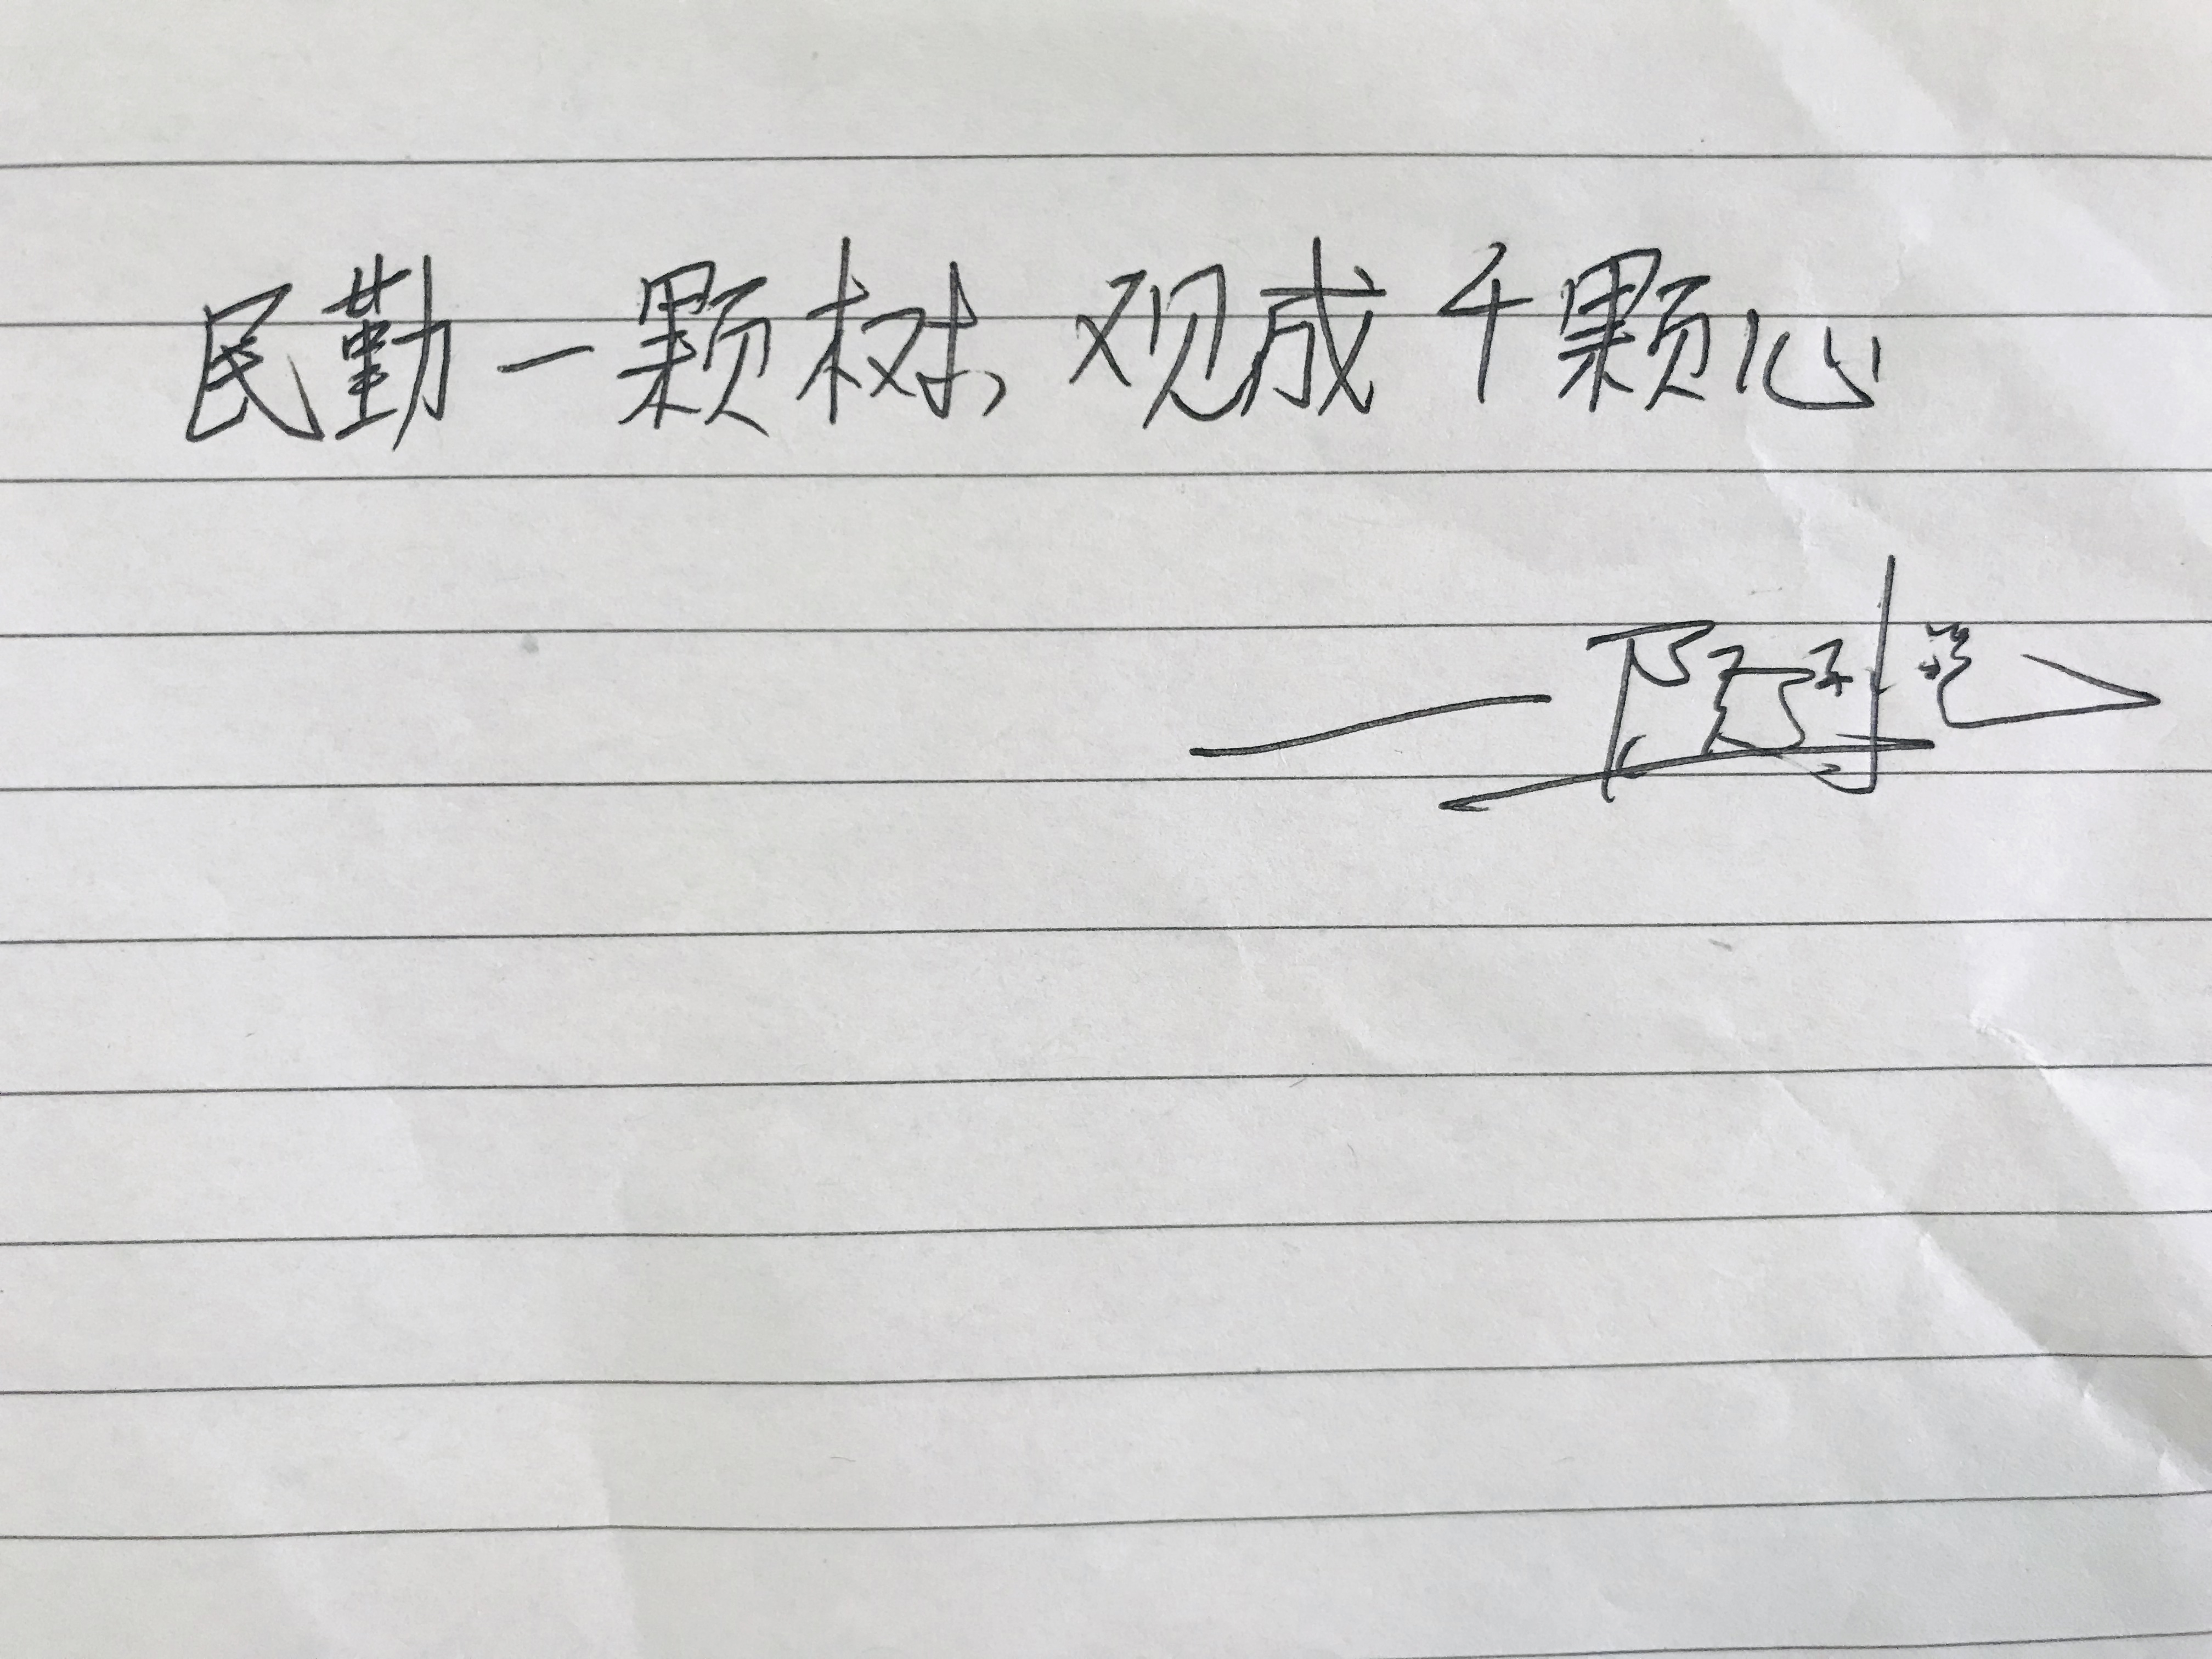 民勤一颗树，观成千颗心